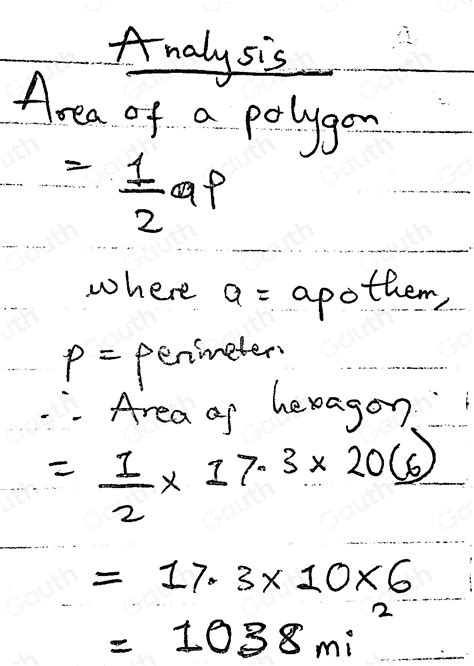 Analysis
Area of a polygon
= 1/2 ap
where a = apothem,
p = perimeter.
∴ Area of hexagon
= 1/2 x 17.3 x 20(6)
= 17.3 x 10 x 6
= 1038 mi²